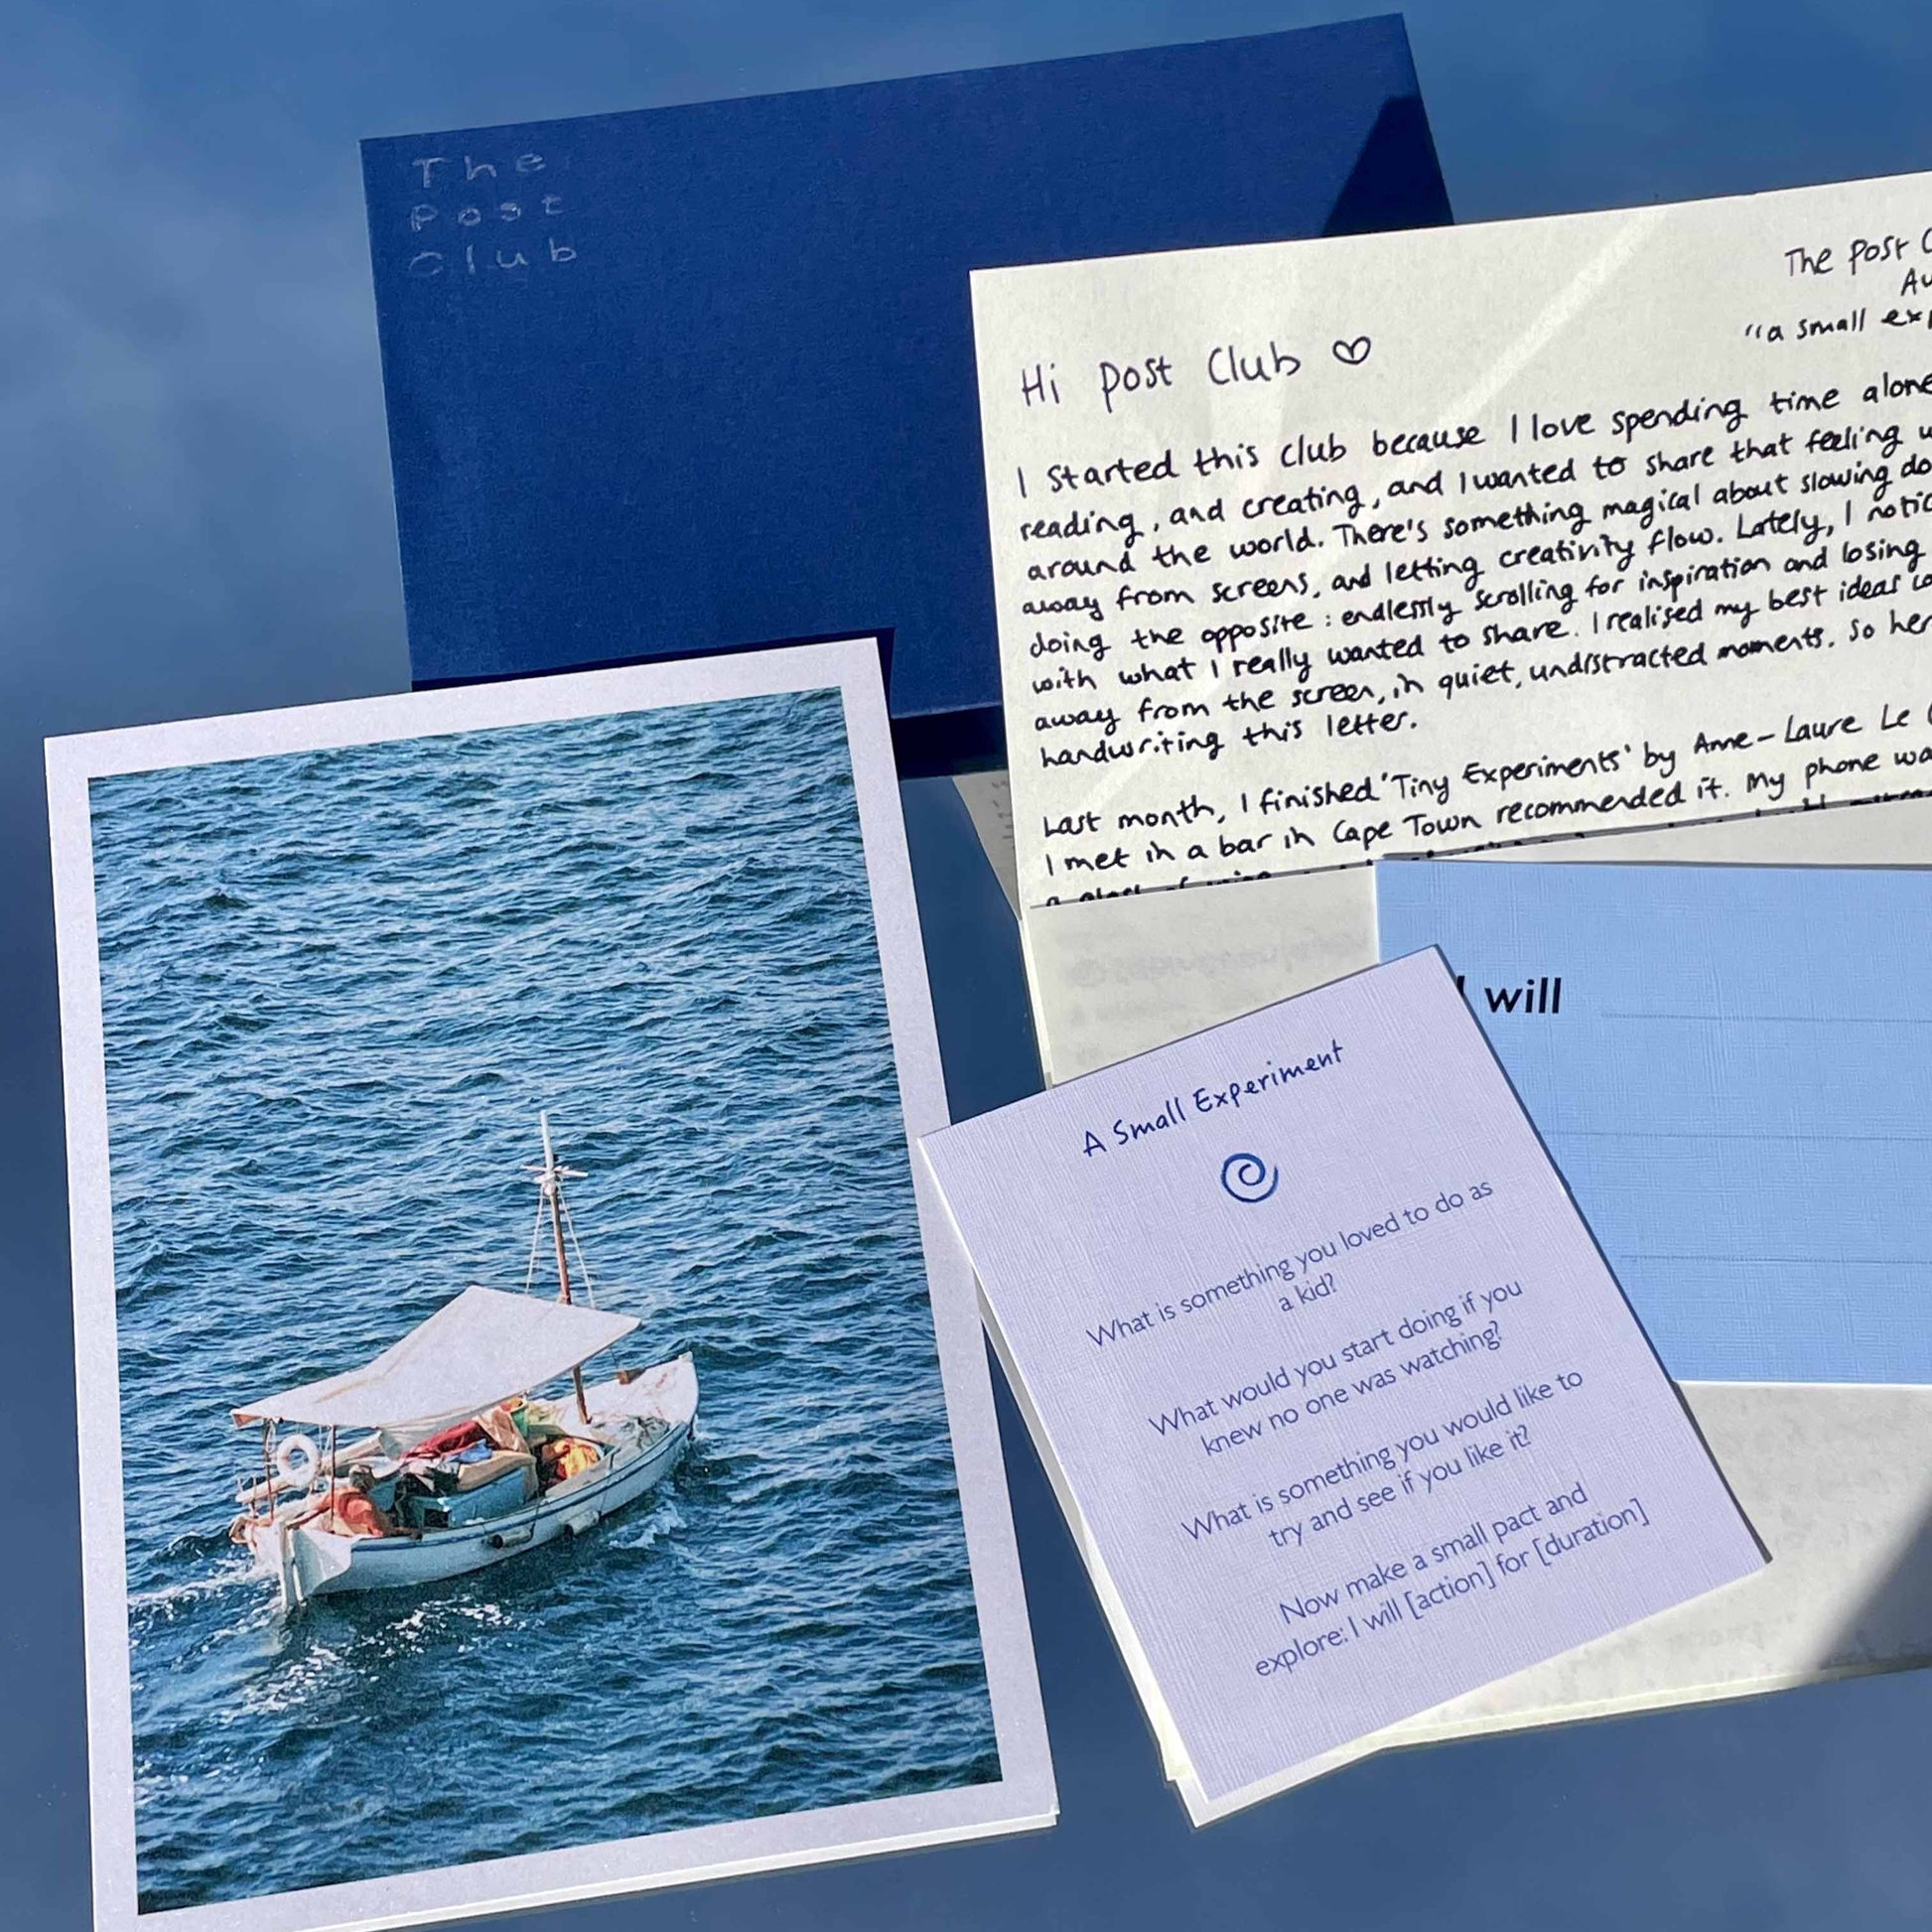 The
Post
Club
The Post
"a small
Hi post Club ♡
I started this club because I love spending time alone
reading, and creating, and I wanted to share that feeling
around the world. There's something magical about slowing
away from screens, and letting creativity flow. Lately, I
doing the opposite: endlessly scrolling for inspiration and losing
with what I really wanted to share. I realised my best ideas
away from the screen, in quiet, undistracted moments. So
handwriting this letter.
Last month, I finished 'Tiny Experiments' by Anne-Laure Le
I met in a bar in Cape Town recommended it. My phone
I will
A Small Experiment
What is something you loved to do as
a kid?
What would you start doing if you
knew no one was watching?
What is something you would like to
try and see if you like it?
Now make a small pact and
explore: I will [action] for [duration]